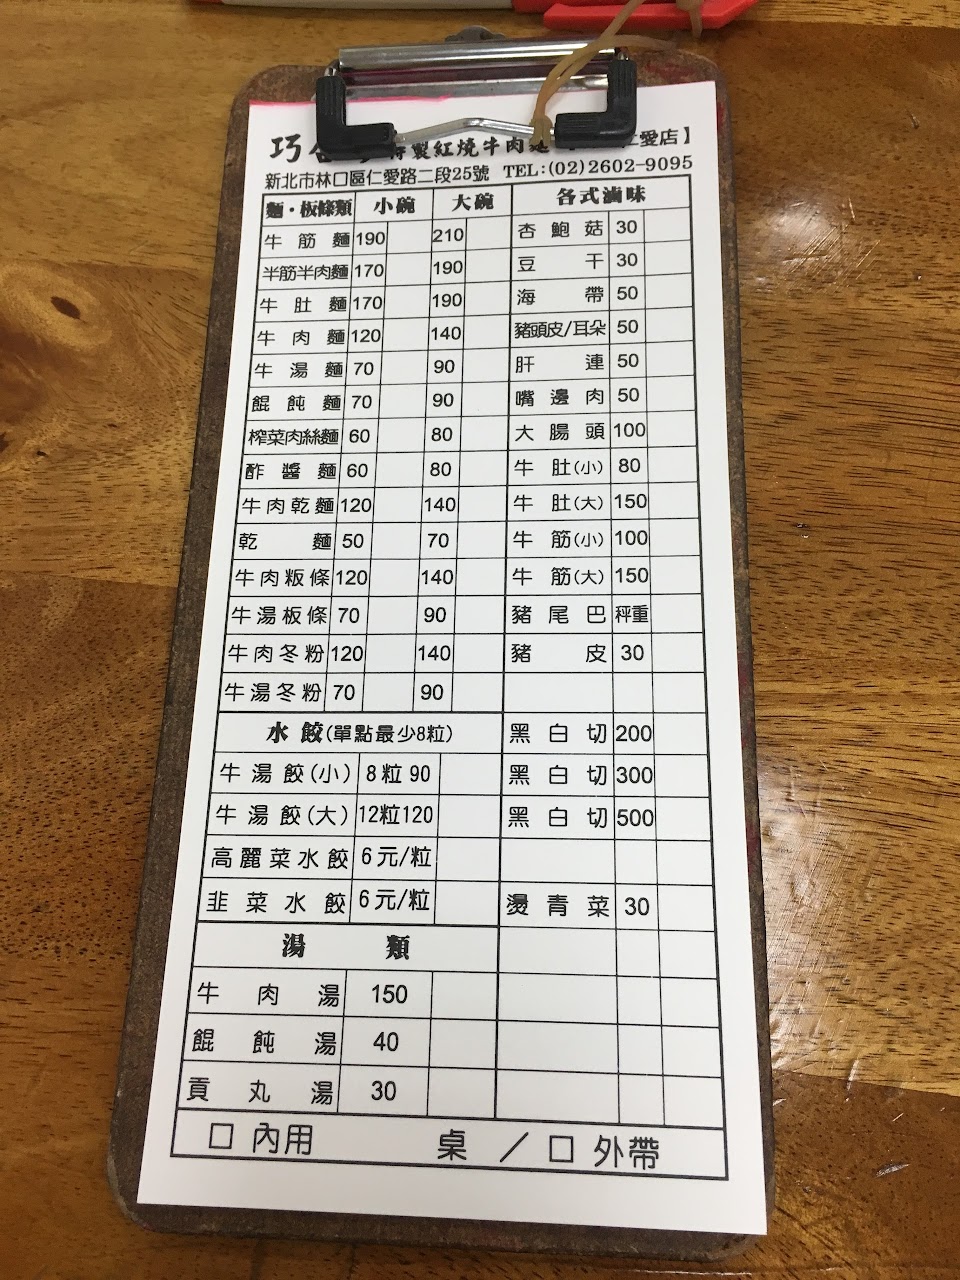 巧
特製紅燒牛肉麵 仁愛店】
新北市林口區仁愛路二段25號 TEL:(02)2602-9095
麵・板條類 小碗 大碗
牛筋麵 190 210
半筋半肉麵 170 190
牛肚麵 170 190
牛肉麵 120 140
牛湯麵 70 90
餛飩麵 70 90
榨菜肉絲麵 60 80
酢醬麵 60 80
牛肉乾麵 120 140
乾麵 50 70
牛肉粄條 120 140
牛湯板條 70 90
牛肉冬粉 120 140
牛湯冬粉 70 90
水餃(單點最少8粒)
牛湯餃(小) 8粒90
牛湯餃(大) 12粒120
高麗菜水餃 6元/粒
韭菜水餃 6元/粒
湯類
牛肉湯 150
餛飩湯 40
貢丸湯 30
各式滷味
杏鮑菇 30
豆干 30
海帶 50
豬頭皮/耳朵 50
肝連 50
嘴邊肉 50
大腸頭 100
牛肚(小) 80
牛肚(大) 150
牛筋(小) 100
牛筋(大) 150
豬尾巴 秤重
豬皮 30
黑白切 200
黑白切 300
黑白切 500
燙青菜 30
□ 內用 桌 / □ 外帶